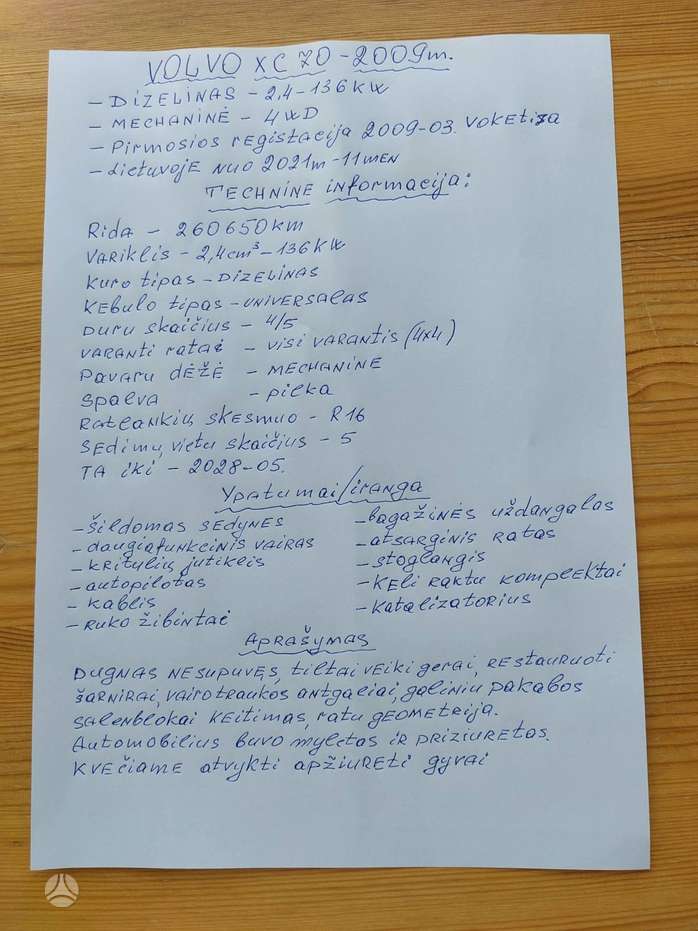 VOLVO XC 70 - 2009m.
- DIZELINAS - 2,4 - 136 KW
- MECHANINĖ - 4WD
- Pirmosios registacija 2009-03. VOKETija
- LietuvojE NUO 2021m - 11 MEN
TECHNINE informacija:
Rida - 260650 km
VARIKLIS - 2,4cm³ - 136 KW
Kuro tipas - DIZELINAS
KEBULO tipas - UNIVERSALAS
DURU skaičius - 4/5
VARANTI ratai - VISI VARANTIS (4x4)
Pavaru DĖŽĖ - MECHANINE
Spalva - pilka
RatLANKIŲ SKESMUO - R16
SEDIMŲ VIETU SKAIČIUS - 5
TA iki - 2028-05.
Ypatumai/iranga
- ŠILDOMAS SEDYNĖS
- daugiafunkcinis VAIRAS
- KRITULIŲ jutiklis
- autopilotas
- Kablis
- RUKO ŽIBINTAI
- bagažINĖS UŽDANGALAS
- atsARGINIS RATAS
- stoglangis
- KELI RAKTU KOMPLEKTAI
- KataLIZATORIUS
APRAŠYMAS
DUGNAS NESUPUVĘS, tiltai VEIKI gerai, RESTAURUOTI
ŠARNIRAI, VAIROTRAUKOS ANTGALIAI, galiniu pakabos
salenblokai KEITIMAS, ratu GEOMETRIJA.
AUTOMOBILIUS BUVO MYLETAS IR PRIZIURETAS.
KVEČIAME atvykti APŽIURETI gyvai